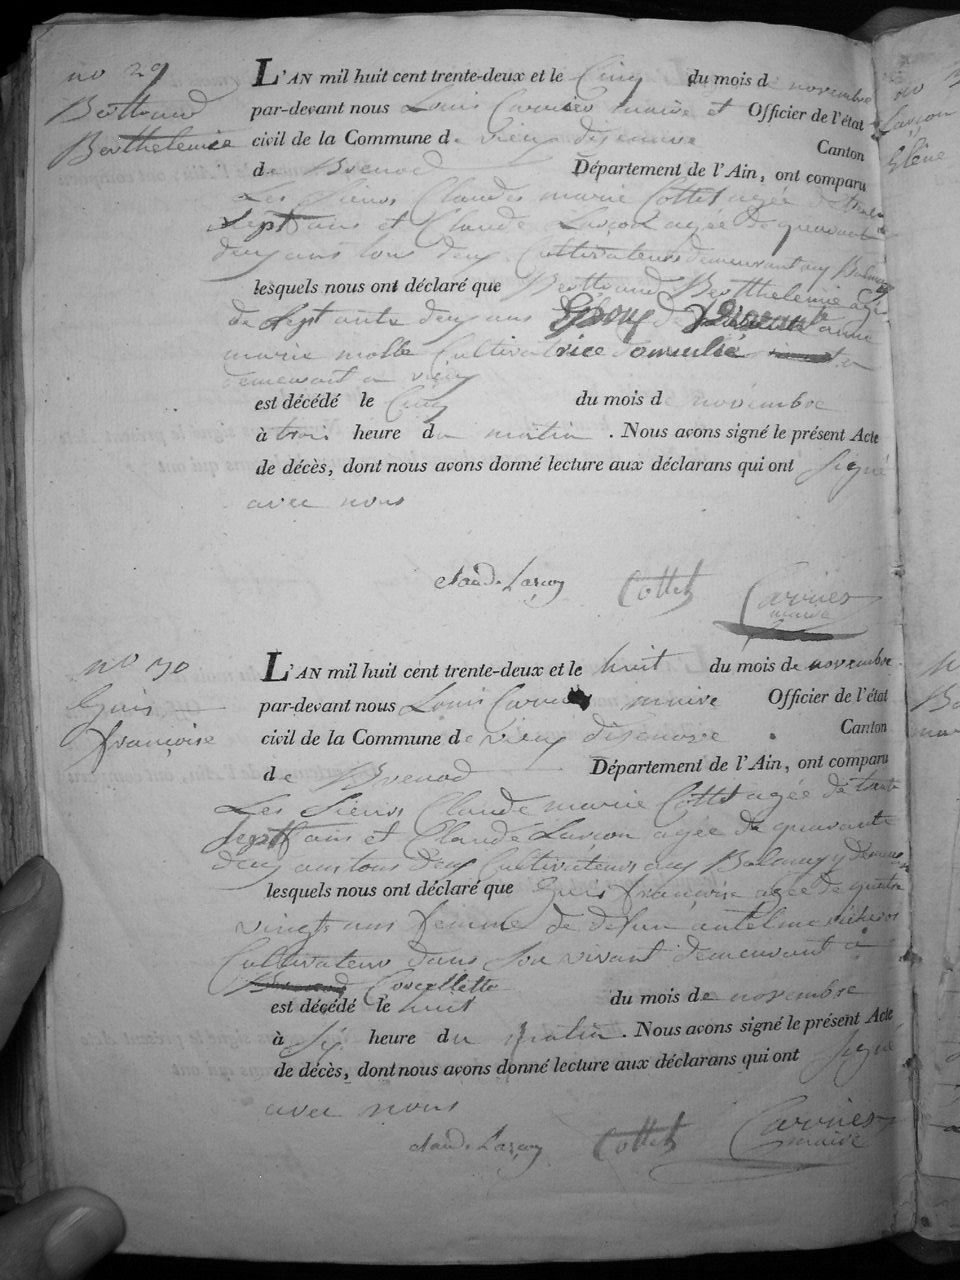 no 29
Berttrand
Berthelemie
L'AN mil huit cent trente-deux et le Cinq du mois de novembre
par-devant nous Louis Carrier maire et Officier de l'état
civil de la Commune de vieux disenave Canton
de Brenod Département de l'Ain, ont comparu
Les Sieurs Claudes marie Cottet agée de trente
sept ans et Claude Larçon agée de quarante
deux ans tous deux Cultivateurs demeurant au Balmay
lesquels nous ont déclaré que Berttrand Berthelemie agé
de Septante deux ans Epoux de anne
marie molle Cultivateur
demeurant a vieux
est décédé le Cinq du mois de novembre
à trois heure du matin . Nous avons signé le présent Acte
de décès, dont nous avons donné lecture aux déclarans qui ont signé
avec nous
claude Larçon Cottet Carrier
maire
no 30
Guis
françoise
L'AN mil huit cent trente-deux et le huit du mois de novembre
par-devant nous Louis Carrier maire Officier de l'état
civil de la Commune de vieux disenave Canton
de Brenod Département de l'Ain, ont comparu
Les Sieurs Claude marie Cottet agée de trente
sept ans et Claude Larçon agée de quarante
deux ans tous deux Cultivateurs au Balmay y demeurant
lesquels nous ont déclaré que Guis françoise agée de quatre
vingts ans femme de defun antelme
Cultivateur dans Son vivant demeurant à
Corcellette
est décédé le huit du mois de novembre
à Six heure du matin . Nous avons signé le présent Acte
de décès, dont nous avons donné lecture aux déclarans qui ont signé
avec nous
claude Larçon Cottet Carrier
maire